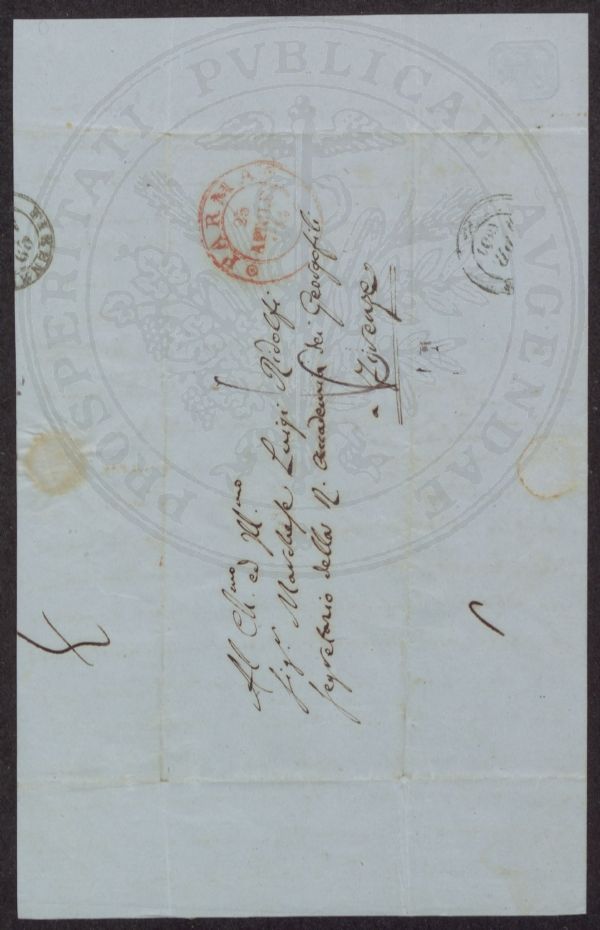 PROSPERITATI PVBLICAE AVGENDAE
FERRARA
25
APRILE
FIRENZE
Al Ch.mo ed Ill.mo
Sig.r Marchese Luigi Ridolfi
Segretario della R. Accademia dei Georgofili
Firenze